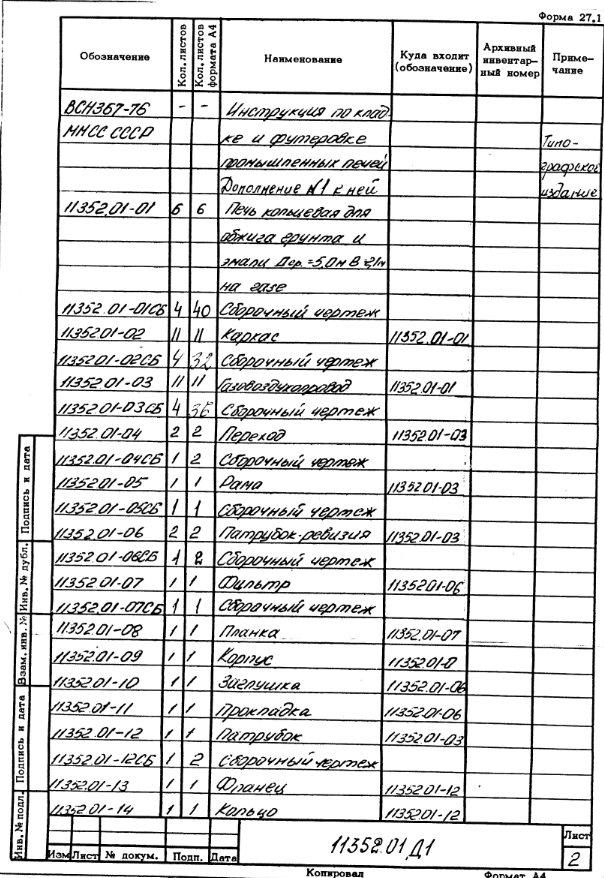 Форма 27.1
Обозначение Кол. листов Кол. листов формата А4 Наименование Куда входит (обозначение) Архивный инвентарный номер Примечание
ВСН367-76 - - Инструкция по клад
ММСС СССР ке и футеровке Типо-
промышленных печей графское
Дополнение №1 к ней издание
11352.01-01 6 6 Печь кольцевая для
обжига грунта и
эмали Дср.=5,0м
на газе
11352.01-01СБ 4 40 Сборочный чертеж
11352.01-02 11 11 Каркас 11352.01-01
11352.01-02СБ 4 32 Сборочный чертеж
11352.01-03 11 11 Газовоздухопровод 11352.01-01
11352.01-03СБ 4 36 Сборочный чертеж
11352.01-04 2 2 Переход 11352.01-03
11352.01-04СБ 1 2 Сборочный чертеж
11352.01-05 1 1 Рама 11352.01-03
11352.01-05СБ 1 1 Сборочный чертеж
11352.01-06 2 2 Патрубок-ревизия 11352.01-03
11352.01-06СБ 1 2 Сборочный чертеж
11352.01-07 1 1 Фильтр 11352.01-06
11352.01-07СБ 1 1 Сборочный чертеж
11352.01-08 1 1 Планка 11352.01-07
11352.01-09 1 1 Корпус 11352.01-0
11352.01-10 1 1 Заглушка 11352.01-06
11352.01-11 1 1 Прокладка 11352.01-06
11352.01-12 1 1 Патрубок 11352.01-03
11352.01-12СБ 1 2 Сборочный чертеж
11352.01-13 1 1 Фланец 11352.01-12
11352.01-14 1 1 Кольцо 11352.01-12
Инв. № подл. Подпись и дата Взам. инв. № Инв. № дубл. Подпись и дата
11352.01 Д1
Лист
2
Изм Лист № докум. Подп. Дата
Копировал Формат А4